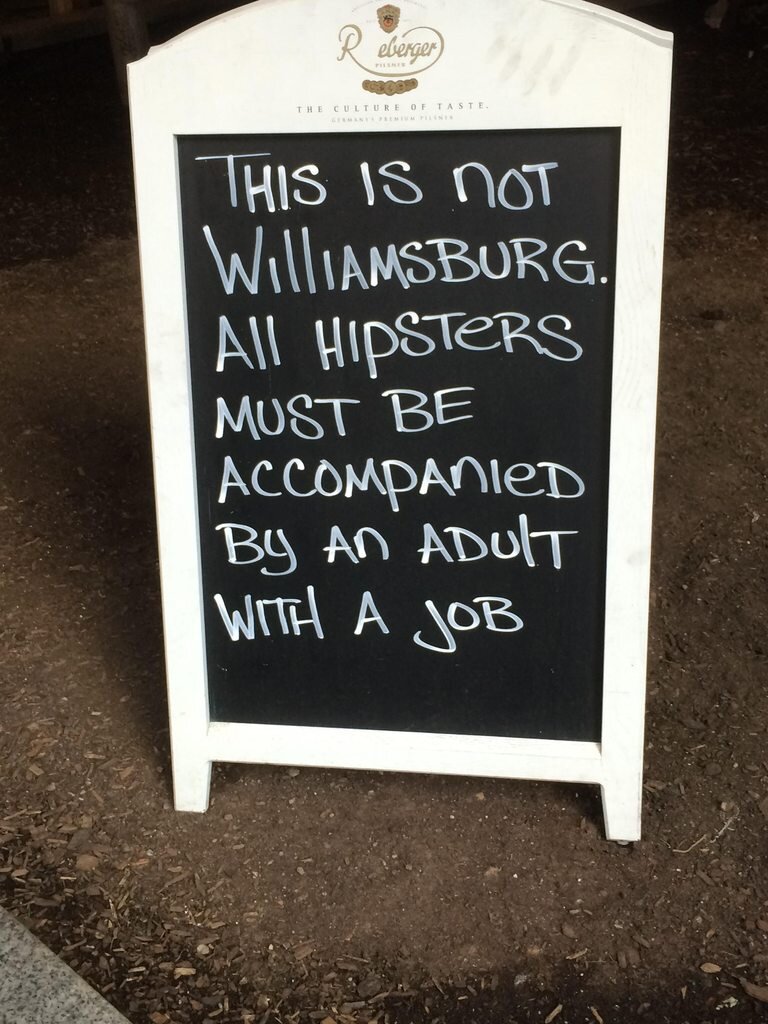 R eberger
PILSNER
THE CULTURE OF TASTE.
GERMANY'S PREMIUM PILSNER
THIS IS NOT
WIllIAMSBURG.
All HIPSTeRS
MUST BE
ACCOMPANIeD
By AN ADUlT
WITH A JOB